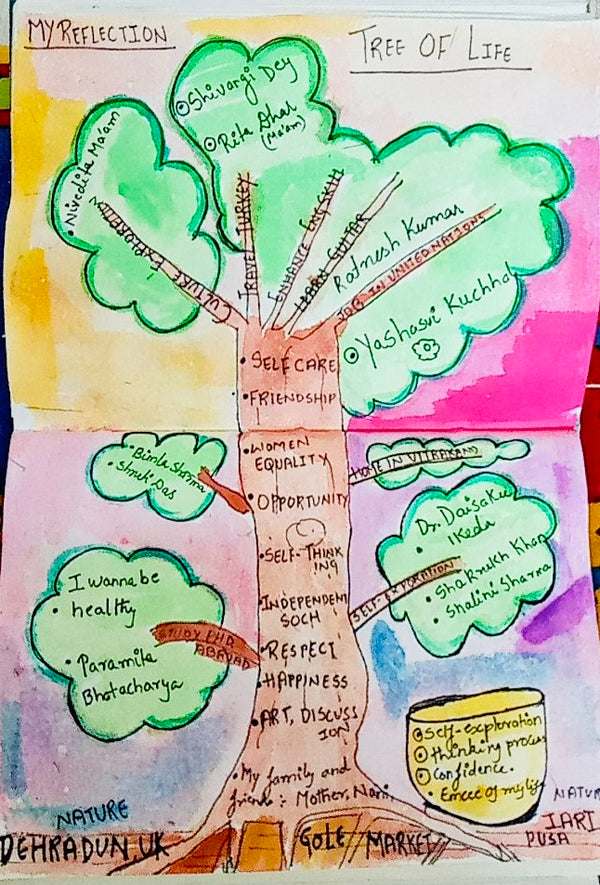 MY REFLECTION
TREE OF LIFE
Shivangi Dey
Rita Dhar
(Ma'am)
Nivedita Ma'am
CULTURE EXPLORATI
TRAVEL TURKEY
ENHANCE ENGLISH
LEARN GUITAR
JOB IN UNITED NATIONS
Ratnesh Kumar
Yashasvi Kuchhal
SELF CARE
FRIENDSHIP
WOMEN
EQUALITY
OPPORTUNITY
SELF-THINK
ING
INDEPENDENT
SOCH
RESPECT
HAPPINESS
ART, DISCUSS
ION
My family and
friends: Mother, Nani,
Bimla Sharma
Shruti Das
HOME IN UTTRAKAND
Dr. Daisaku
Ikeda
Shahrukh Khan
Shalini Sharma
SELF-EXPORATION
I wanna be
healthy
Paramita
Bhotacharya
STUDY PHD
ABROAD
Self-exploration
thinking process
Confidence.
Emcee of my life
NATURE
DEHRADUN, UK
GOLE MARKET
NATUR
IARI
PUSA